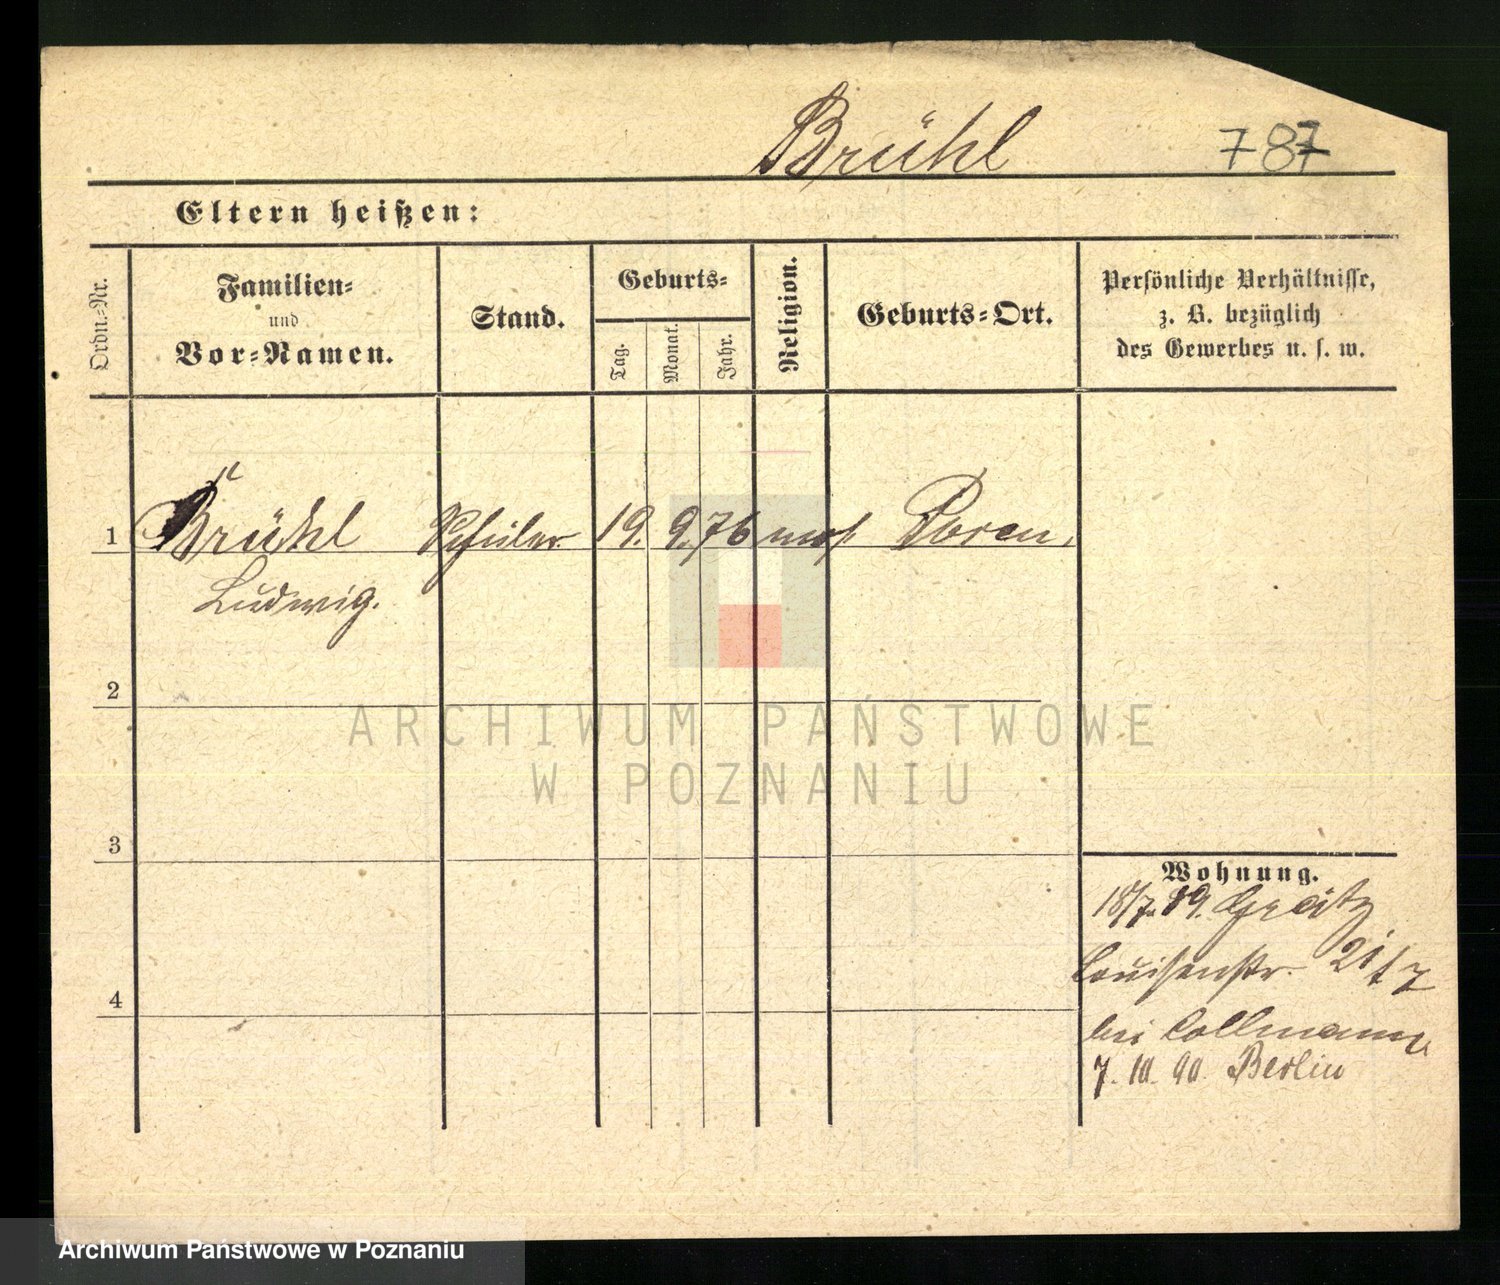 Brühl 787
Eltern heißen:
Ordn.-Nr.
Familien-
und
Vor-Namen.
Stand.
Geburts-
Tag.
Monat.
Jahr.
Religion.
Geburts-Ort.
Persönliche Verhältnisse,
z. B. bezüglich
des Gewerbes u. s. w.
1 Brühl Schüler 19. 9. 76 mos Posen,
Ludwig.
2
3
4
Wohnung.
18/7. 89. Graetz
Louisenstr.
bei Collmann
7. 10. 90. Berlin
ARCHIWUM PAŃSTWOWE
W POZNANIU
Archiwum Państwowe w Poznaniu